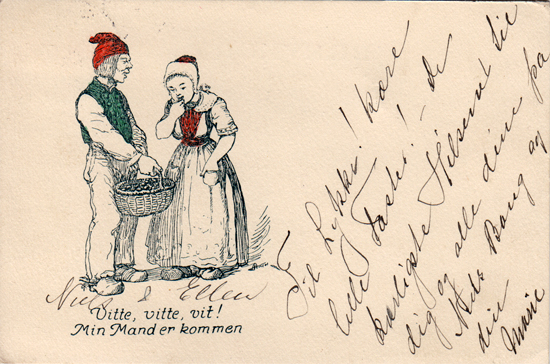 Niels & Ellen
Vitte, vitte, vit!
Min Mand er kommen
Til Lykke! kære
lille Faster! – de
kærligste Hilsener til
dig og alle dine fra
Bang og
din
Marie